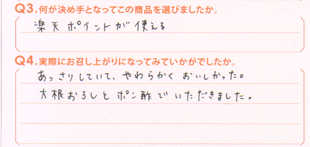 Q3.何が決め手となってこの商品を選びましたか。
楽天ポイントが使える
Q4.実際にお召し上がりになってみていかがでしたか。
あっさりしていて、やわらかくおいしかった。
大根おろしとポン酢でいただきました。